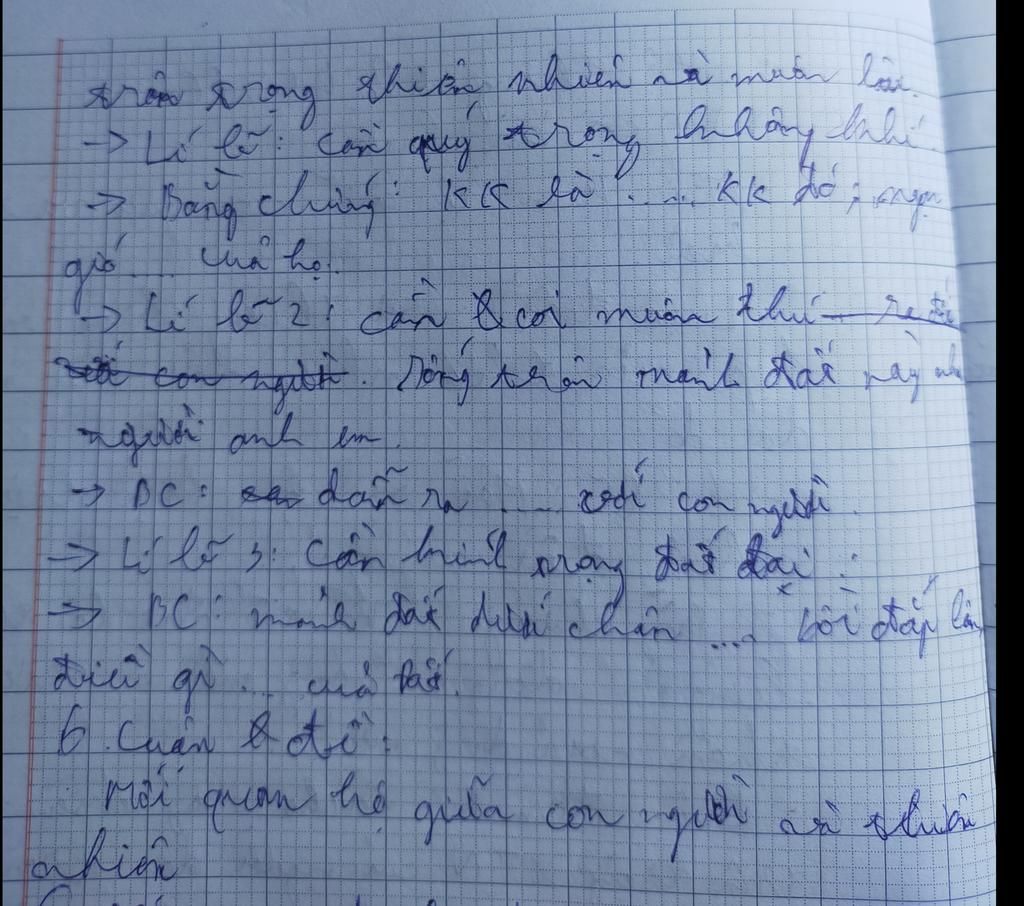 trân trọng thiên nhiên và muôn loài.
→ Lí lẽ: cần quý trọng không khí.
→ Bằng chứng: KK là ..... KK đó; ngọn
gió ... của họ.
→ Lí lẽ 2: cần coi muôn thú
con người. Sống trên mảnh đất này như
người anh em.
→ BC: dẫn ra .... với con người.
→ Lí lẽ 3: Cần kính trọng đất đai:
→ BC: mảnh đất dưới chân .... bồi đắp lên,
điều gì ... của đất.
6. Luận đề:
Mối quan hệ giữa con người và thiên
nhiên